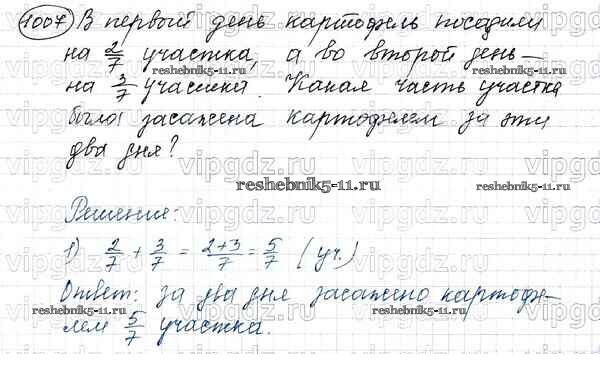 1007 В первый день картофель посадили
на 2/7 участка, а во второй день —
на 3/7 участка. Какая часть участка
была засажена картофелем за эти
два дня?
reshebnik5-11.ru
Решение:
1) 2/7 + 3/7 = 2+3/7 = 5/7 (уч.)
Ответ: за два дня засажено картофе-
лем 5/7 участка.